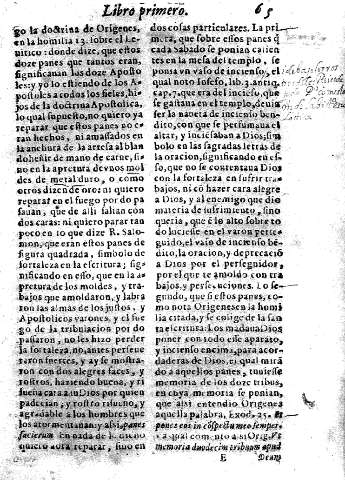 Libro primero. 65
go la doctrina de Origenes,
en la homilia 13. sobre el Le-
uitico: donde dize, que estos
doze panes que tantos eran,
significauan los doze Aposto
les: y yo lo estiendo de los A-
postoles a codos los fieles, hi-
jos de la doctrina Apostolica,
lo qual supuesto, no quiero ya
reparar que estos panes no e-
ran hechos, ni amassados en
la anchura de la artesa al blan
do heñir de mano de carne, si-
no en la apretura de vnos mol
des de metal duro, o como
otros dizen de oro: ni quiero
reparar en el fuego por do pa
sauan, que de alli salian con
dos caras: ni quiero reparar tan
poco en lo que dize R. Salo-
mon, que eran estos panes de
figura quadrada, simbolo de
fortaleza en la escritura; sig-
nificando en esso, que en la a-
pretura de los moldes, y tra-
bajos que amoldaron, y labra
ron las almas de los justos, y
Apostolicos varones, y el fue
go de la tribulacion por do
passaron, no les hizo perder
la fortaleza, no, antes perseue
raron fuertes, y ay se mostra
ron con dos alegres faces, y
rostros, haziendo buena, y ri
sueña cara a Dios por quien
padecian, y rostro risueño, y
agradable a los hombres que
los atormentauan: y assi, panes
facierum
quiero aora reparar, sino en
dos cosas particulares. La pri
mera, que sobre estos panes q̃
cada Sabado se ponian calien
tes en la mesa del templo, se
ponia vn vaso de incienso, el
qual noto Iosefo, lib. 3. antiq.
cap. 7. que era del incienso, que
se gastaua en el templo, de uin
ser la naueta de incienso ben-
dito, con que se perfumaua el
altar, y incensauan a Dios, sim
bolo en las sagradas letras de
la oracion, significando en es-
so, que no se contentaua Dios
con la fortaleza en sufrir tra-
bajos, ni cõ hazer cara alegre
a Dios, y al enemigo que dio
materia de sufrimiento, sino
queria, que è lo alto sobre to
do luciesse en el varon perse-
guido, el vaso de incienso bè-
dito, la oracion, y deprecaciõ
a Dios por el perseguidor,
por el que te amoldo con tra
bajos, y persecuciones. Lo se-
gundo, que estos panes, co-
mo nota Origenes en la homi
lia citada, y se colige de la san
ta escritura: Los mandaua Dios
poner con todo esse aparato,
y incienso encima, para acor-
daderas de Dios, el qual mirã
do a aquellos panes, tuuiesse
memoria de los doze tribus,
en cuya memoria se ponian,
que assi entendio Origenes
aquella palabra, Exod. 25. Et
pones eos in cõspectu meo semper.
memoria duodecim tribuum apud
E Deum